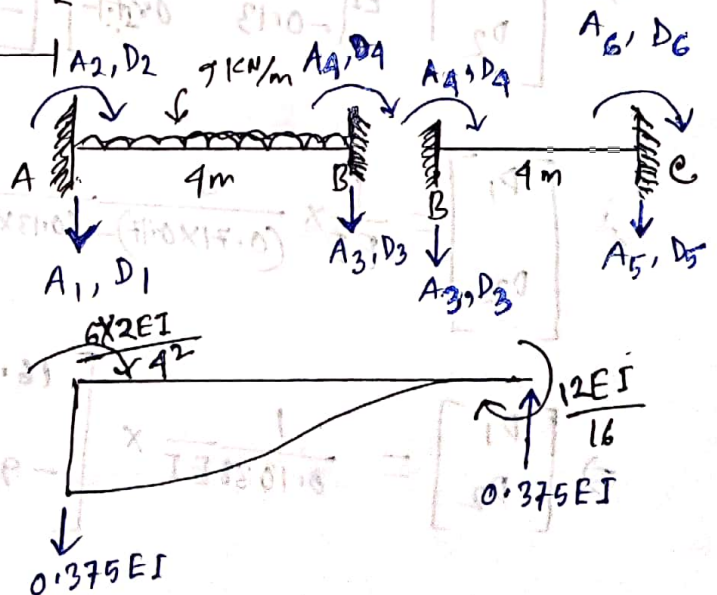 A2, D2
9 KN/m
A4, D4
A4, D4
A6, D6
A
4m
B
B
4m
C
A1, D1
A3, D3
A3, D3
A5, D5
6X2EI
4²
12EI
16
0.375EI
0.375EI